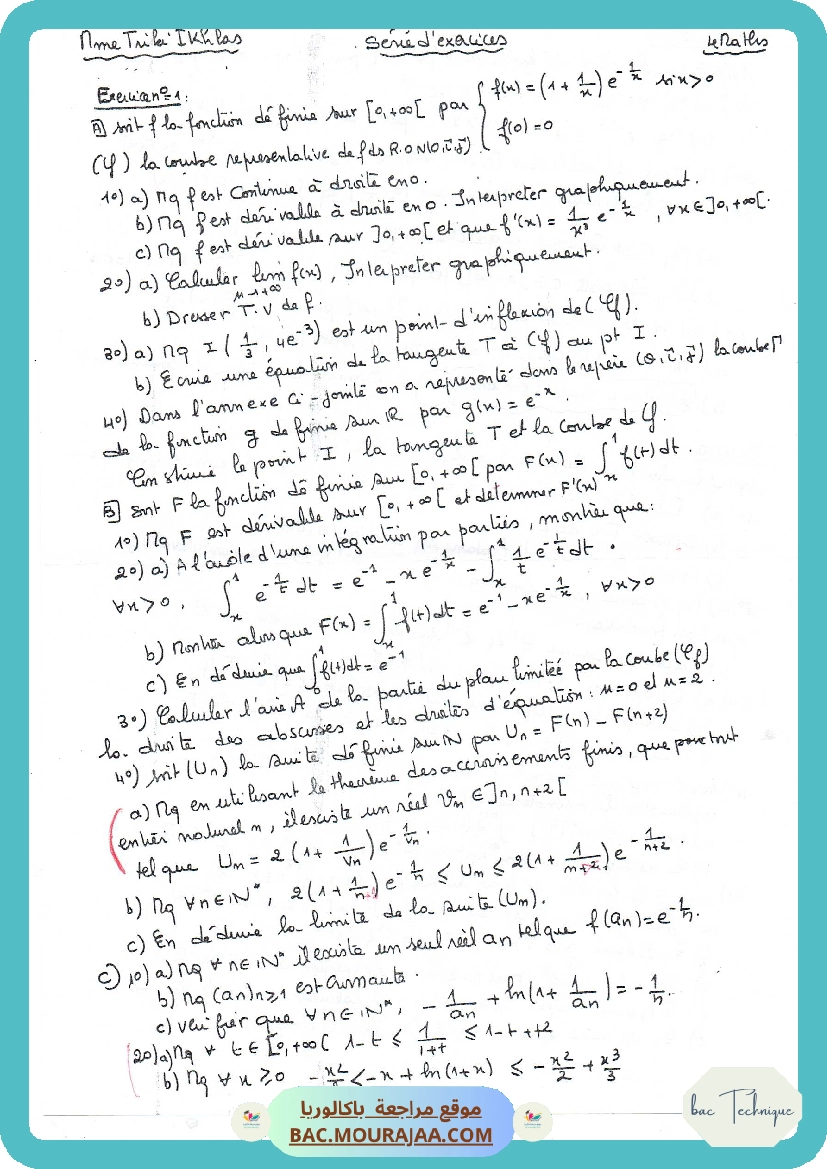 Mme Triki IKhlas Série d'exercices 4Maths
Exercice n°1:
A soit f la fonction définie sur [0,+∞[ par { f(x) = (1 + 1/x) e^{-1/x} si x>0
f(0) = 0
(Cf) la courbe représentative de f ds R.O.N (O,i,j)
1°) a) Mq f est Continue à droite en 0.
b) Mq f est dérivable à droite en 0. Interpreter graphiquement.
c) Mq f est dérivable sur ]0,+∞[ et que f'(x) = 1/x³ e^{-1/x}, ∀x∈]0,+∞[.
2°) a) Calculer lim_{x→+∞} f(x), Interpreter graphiquement.
b) Dresser T.V de f.
3°) a) Mq I(1/3, 4e^{-3}) est un point d'inflexion de (Cf).
b) Ecrire une équation de la tangente T à (Cf) au pt I.
4°) Dans l'annexe ci-jointe on a représenté dans le repère (O,i,j) la courbe Γ
de la fonction g définie sur IR par g(x) = e^{-x}.
Construire le point I, la tangente T et la courbe de Cf.
B soit F la fonction définie sur [0,+∞[ par F(x) = ∫_x^1 f(t)dt.
1°) Mq F est dérivable sur [0,+∞[ et déterminer F'(x)
2°) a) A l'aide d'une intégration par parties, montrer que:
∀x>0, ∫_x^1 e^{-1/t} dt = e^{-1} - x e^{-1/x} - ∫_x^1 1/t e^{-1/t} dt.
b) Montrer alors que F(x) = ∫_x^1 f(t)dt = e^{-1} - x e^{-1/x}, ∀x>0
c) En déduire que ∫_0^1 f(t)dt = e^{-1}
3°) Calculer l'aire A de la partie du plan limitée par la courbe (Cf)
la droite des abscisses et les droites d'équation: x=0 et x=2.
4°) soit (Un) la suite définie sur IN par Un = F(n) - F(n+2)
a) Mq en utilisant le théorème des accroisements finis, que pour tout
entier naturel n, il existe un réel Vn ∈ ]n, n+2[
tel que Un = 2(1 + 1/Vn) e^{-1/Vn}.
b) Mq ∀n∈IN*, 2(1 + 1/n) e^{-1/n} ≤ Un ≤ 2(1 + 1/(n+2)) e^{-1/(n+2)}.
c) En déduire la limite de la suite (Un).
C 1°) a) Mq ∀n∈IN* il existe un seul réel an tel que f(an) = e^{-1/n}.
b) Mq (an)n≥1 est croissante.
c) Vérifier que ∀n∈IN*, -1/an + ln(1 + 1/an) = -1/n.
2°) a) Mq ∀ t∈[0,+∞[ 1-t ≤ 1/(1+t) ≤ 1-t+t²
b) Mq ∀x≥0 -x²/2 ≤ -x + ln(1+x) ≤ -x²/2 + x³/3
موقع مراجعة باكالوريا
BAC.MOURAJAA.COM
bac Technique